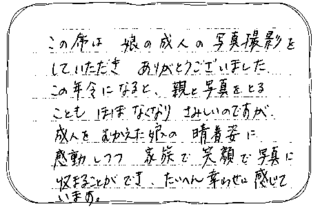 この度は 娘の成人の写真撮影を
していただき ありがとうございました
この年令になると、親と写真をとる
ことも ほぼなくなり さみしいのですが
成人をむかえた娘の 晴着姿に
感動しつつ 家族で 笑顔で写真に
収まることができ、たいへん幸わせに感じて
います。